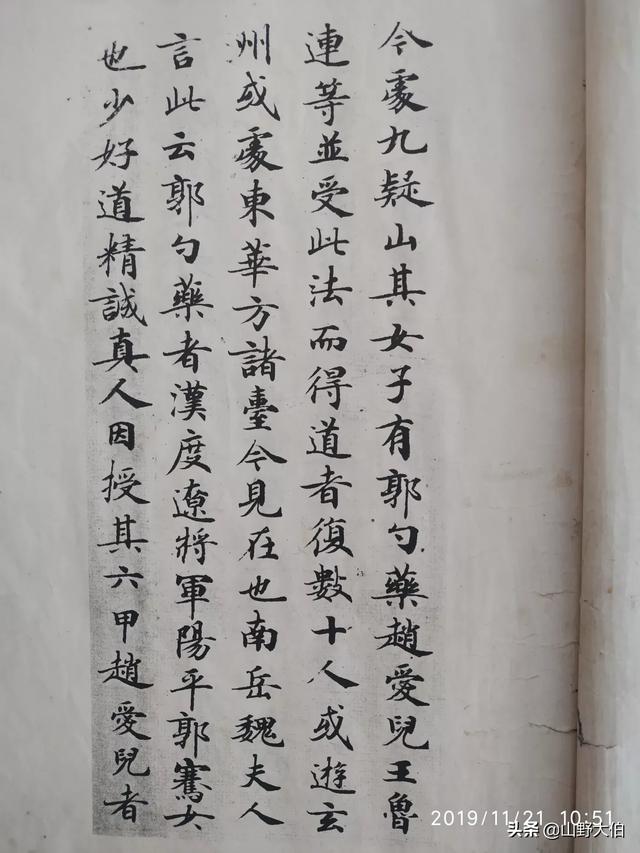 今處九疑山其女子有郭勺藥趙愛兒王魯
連等並受此法而得道者復數十人或遊玄
州或處東華方諸臺令見在也南岳魏夫人
言此云郭勺藥者漢度遼將軍陽平郭騫女
也少好道精誠真人因授其六甲趙愛兒者
2019/11/21 10:51
头条@山野大伯